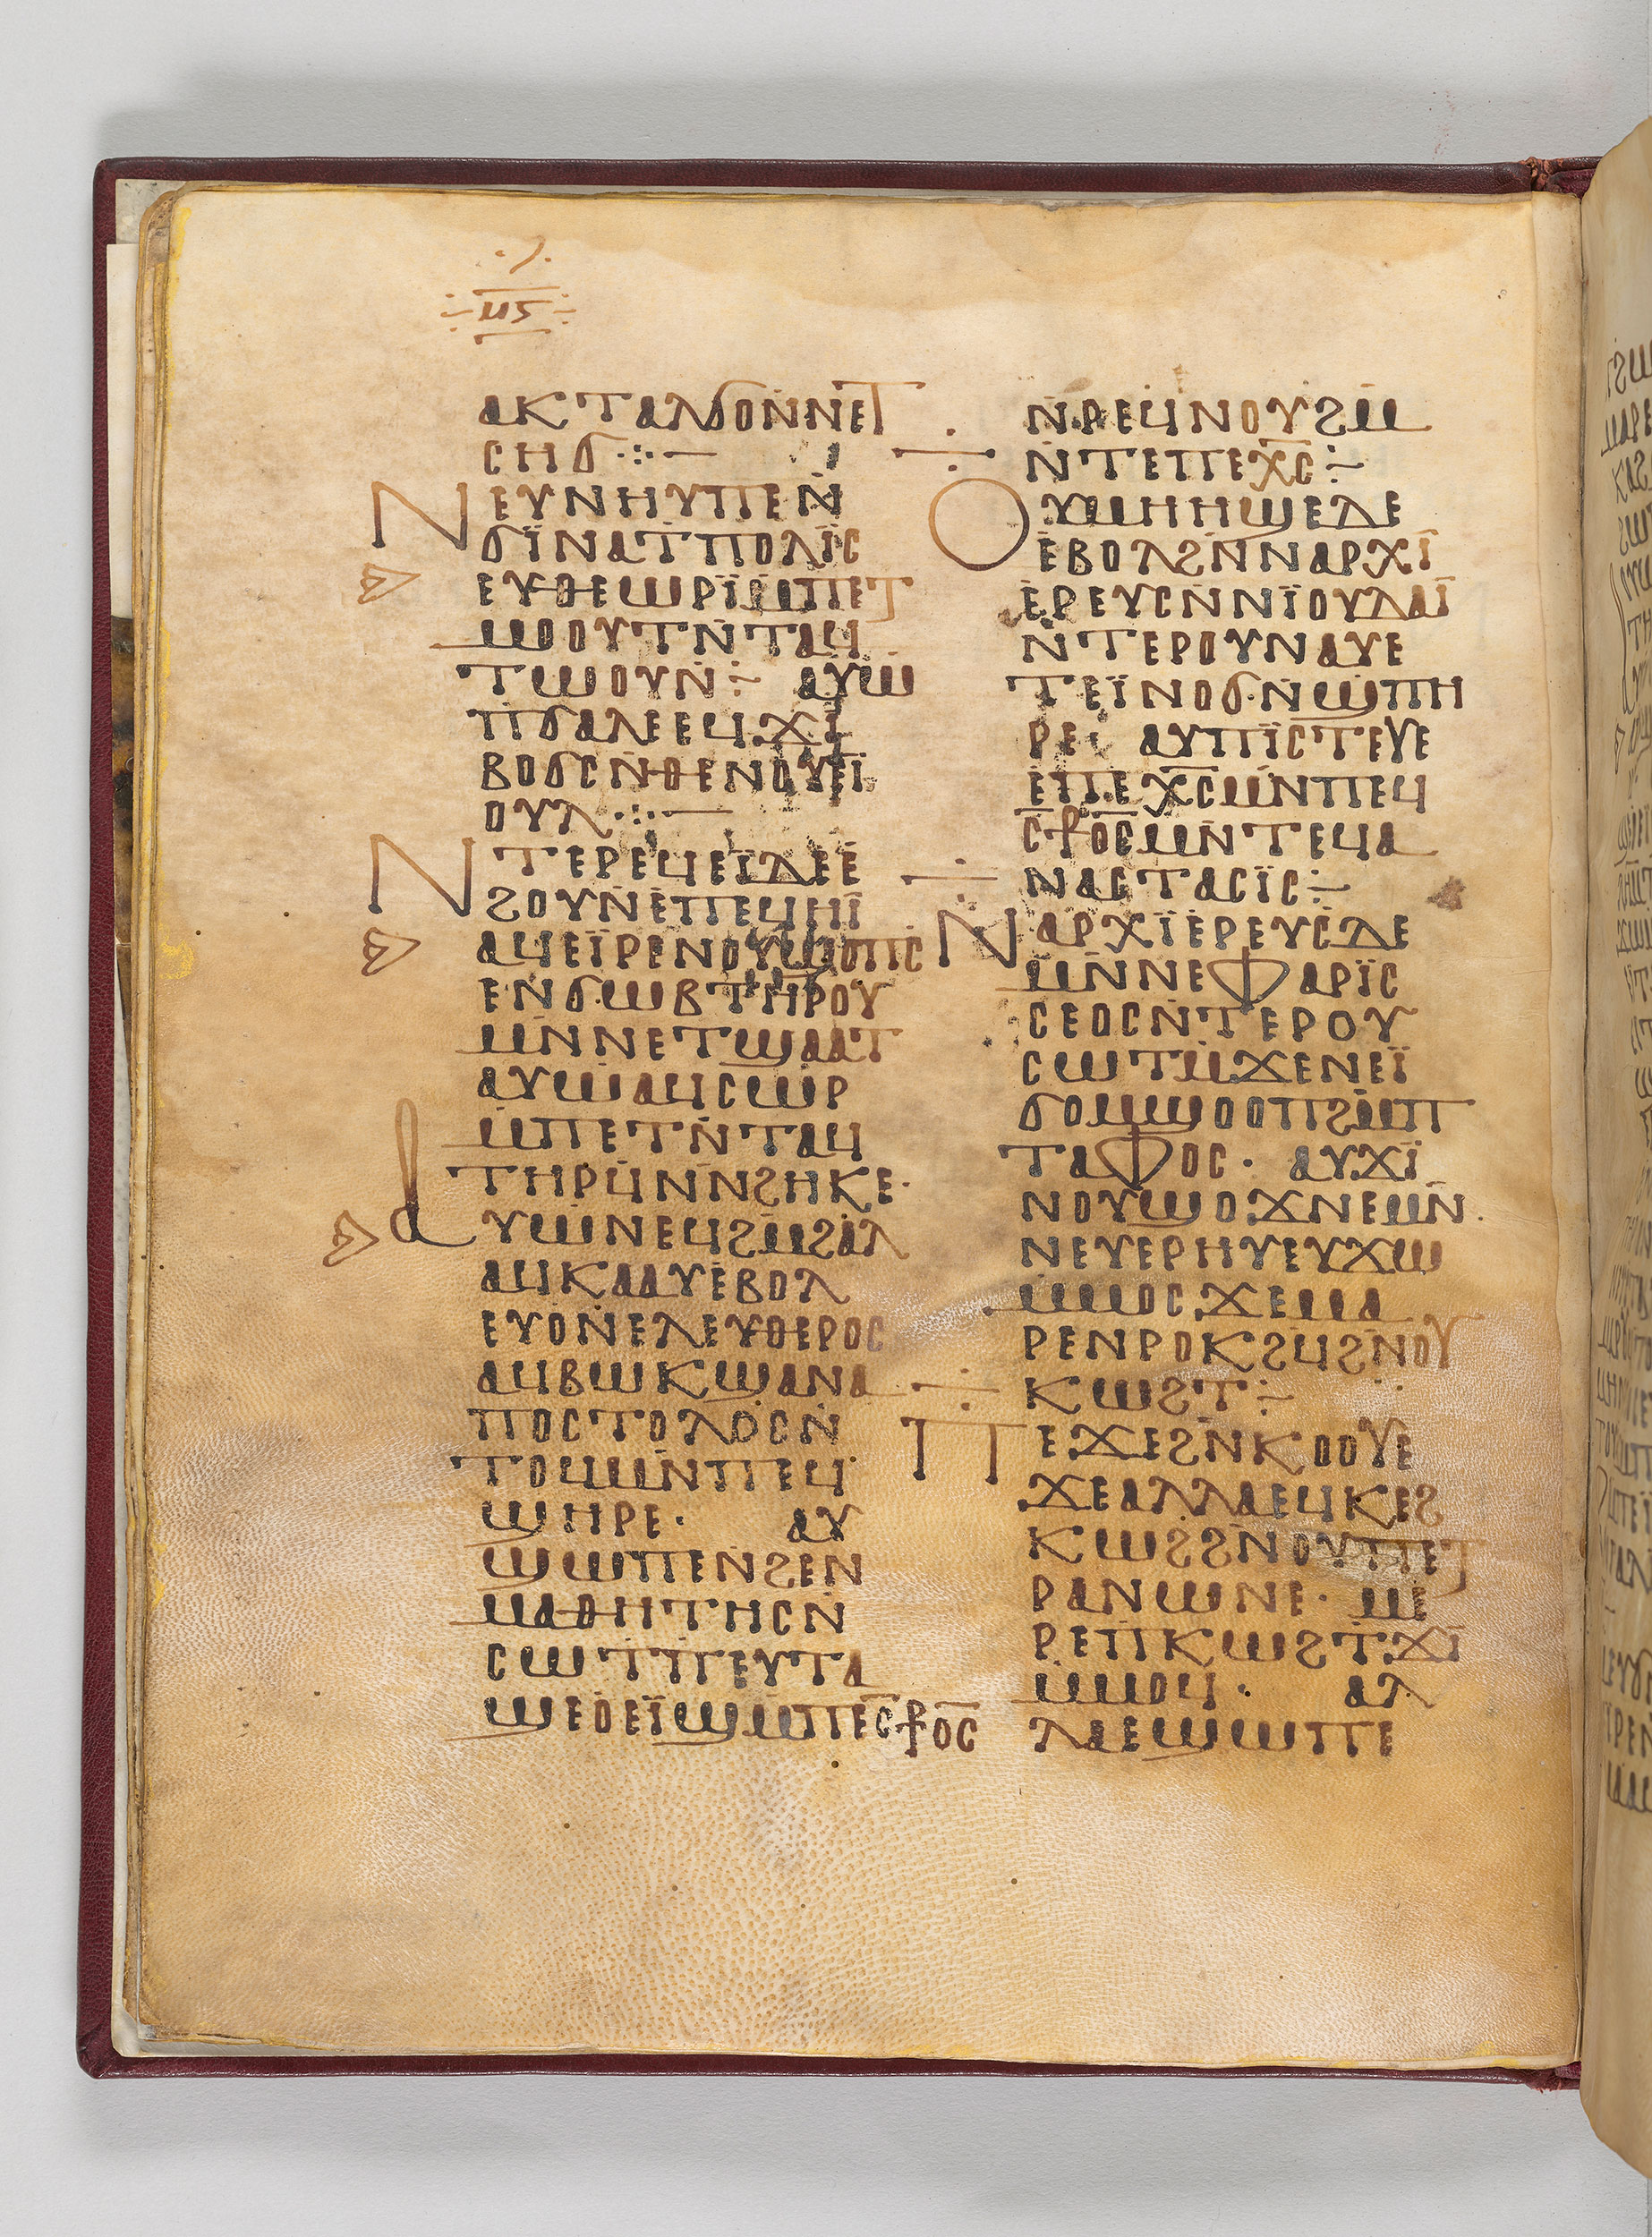 ⲙⲋ
ⲁⲕⲧⲁⲗϭⲟⲛ̇ⲛⲉⲧ
ⲥⲏϭ·:·—
ⲛⲉⲩⲛⲏⲩⲡⲉⲛ̇
ϭⲓ̈ⲛⲁⲧⲡⲟⲗⲓ̈ⲥ
ⲉⲩⲑⲉⲱⲣⲓ̈ⲙ̇ⲡⲉⲧ
ⲙⲟⲟⲩⲧⲛ̇ⲧⲁϥ
ⲧⲱⲟⲩⲛ̇÷ ⲁⲩⲱ̇
ⲡ̇ϭⲁⲗⲉⲉϥϫⲓ̈
ⲃⲟϭⲥⲛ̇ⲑⲉⲛⲟⲩⲉⲓ̈
ⲟⲩⲗ·:·—
ⲛⲧⲉⲣⲉϥⲉⲓ̈ⲇⲉⲉ̇
ϩⲟⲩⲛ̇ⲉ̇ⲡⲉϥⲏⲓ̈
ⲁϥⲉⲓ̈ⲣⲉⲛⲟⲩϣⲟⲡⲥ
ⲉⲛϭⲱⲃⲧⲏⲣⲟⲩ
ⲙⲛ̇ⲛⲉⲧϣⲁⲁⲧ
ⲁⲩⲱ̇ⲁϥⲥⲱⲣ
ⲙ̇ⲡⲉⲧⲛ̇ⲧⲁϥ
ⲧⲏⲣϥⲛ̇ⲛϩⲏⲕⲉ·
ⲁⲩⲱ̇ⲛⲉϥϩⲙ̇ϩⲁ̇ⲗ
ⲁϥⲕⲁⲁⲩⲉ̇ⲃⲟⲗ
ⲉⲩⲟ̇ⲛ̇ⲉⲗⲉⲩⲑⲉⲣⲟⲥ
ⲁϥⲃⲱⲕϣⲁⲛⲁ
ⲡⲟⲥⲧⲟⲗⲟⲥⲛ̇
ⲧⲟϥⲙⲛ̇ⲡⲉϥ
ϣⲏⲣⲉ· ⲁⲩ
ϣⲱⲡⲉⲛ̇ϩⲉⲛ
ⲙⲁⲑⲏⲧⲏⲥⲛ̇
ⲥⲱⲧⲡ̇ⲉⲩⲧⲁ
ϣⲉⲟ̇ⲉⲓ̈ϣⲙ̇ⲡⲉⲥ̅ⲣⲟⲥ̅
ⲛ̇ⲣⲉϥⲛⲟⲩϩⲙ
ⲛ̇ⲧⲉⲡⲉⲭ̅ⲥ̅÷
ⲟⲩⲙⲏⲏϣⲉⲇⲉ
ⲉ̇ⲃⲟⲗϩⲛ̇ⲛⲁⲣⲭⲓ̈
ⲉ̇ⲣⲉⲩⲥⲛ̇ⲛⲓ̈ⲟⲩⲇⲁⲓ̈
ⲛ̇ⲧⲉⲣⲟⲩⲛⲁⲩⲉ
ⲧⲉⲓ̈ⲛⲟϭ·ⲛ̇ϣⲡⲏ
ⲣⲉ ⲁⲩⲡⲓ̈ⲥⲧⲉⲩⲉ
ⲉ̇ⲡⲉⲭ̅ⲥ̅ⲙⲛ̇ⲡⲉϥ
ⲥ̅ⲣⲟⲥ̅ⲙⲛ̇ⲧⲉϥⲁ
ⲛⲁⲥⲧⲁⲥⲓ̈ⲥ÷
ⲛⲁⲣⲭⲓ̈ⲉ̇ⲣⲉⲩⲥⲇⲉ
ⲙⲛ̇ⲛⲉⲫⲁⲣⲓ̈ⲥ
ⲥⲉⲟⲥⲛ̇ⲧⲉⲣⲟⲩ
ⲥⲱⲧⲙ̇ϫⲉⲛⲉⲓ̈
ϭⲟⲙϣⲟⲟⲡϩⲙ̇ⲡ
ⲧⲁⲫⲟⲥ· ⲁⲩϫⲓ̈
ⲛⲟⲩϣⲟϫⲛⲉⲙⲛ̇
ⲛⲉⲩⲉⲣⲏⲩⲉⲩϫⲱ
ⲙ̇ⲙⲟⲥϫⲉⲙⲁ
ⲣⲉⲛⲣⲟⲕϩϥϩⲛⲟⲩ
ⲕⲱϩⲧ÷
ⲡⲉϫⲉϩⲛ̇ⲕⲟⲟⲩⲉ
ϫⲉⲁⲗⲗⲁⲉϥⲕⲉϩ
ⲕⲱϩϩⲛ̇ⲟⲩⲡⲉⲧ
ⲣⲁⲛⲱⲛⲉ· ⲙⲉ
ⲣⲉⲡⲕⲱϩⲧ̇ϫⲓ̈
ⲙ̇ⲙⲟϥ· ⲁⲗ
ⲗⲁⲉϣⲱⲡⲉ